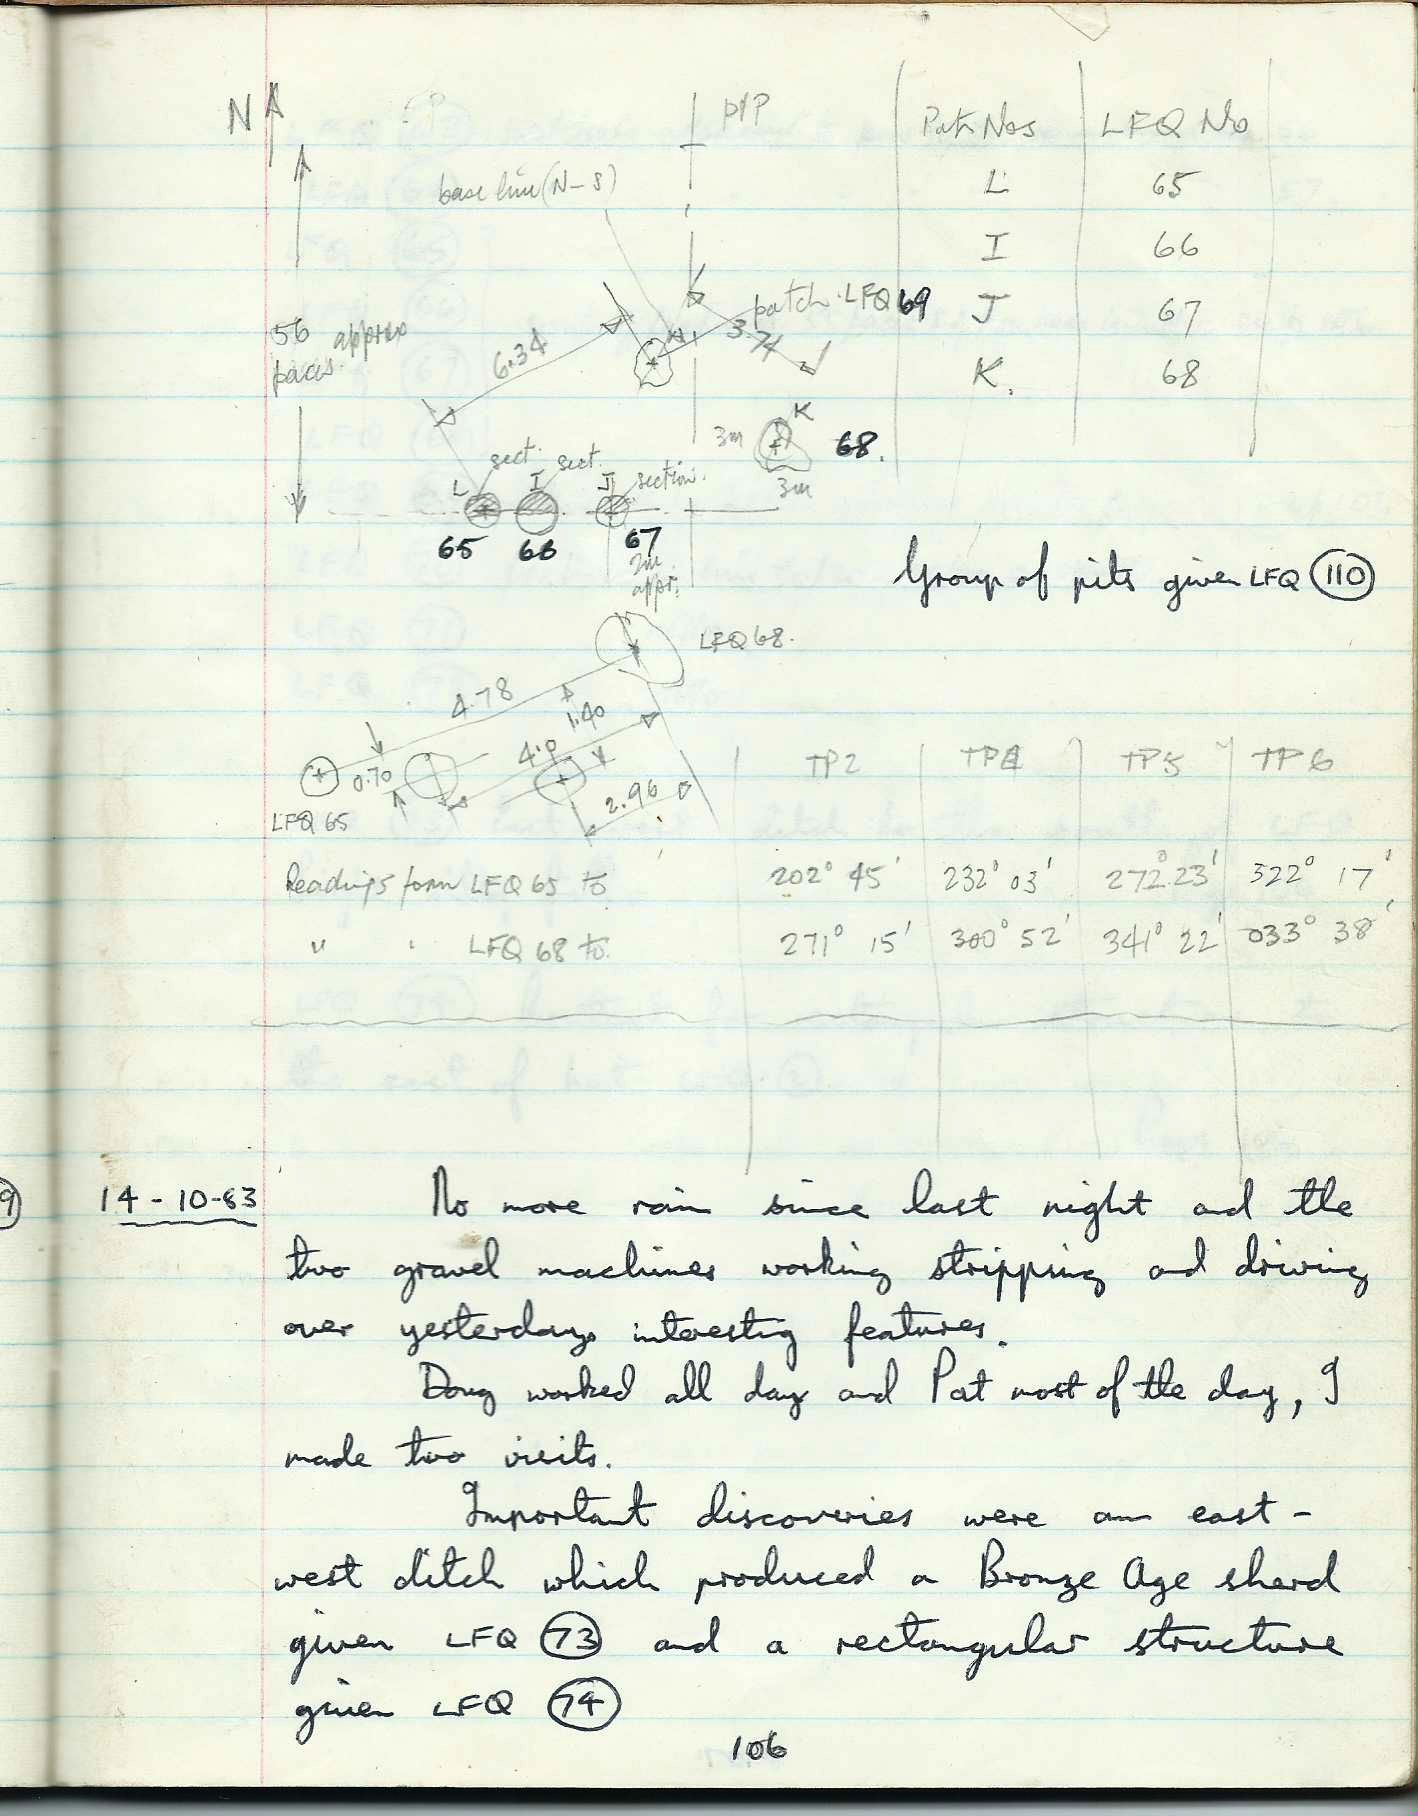 N
P/P
Pat Nos LFQ No
L 65
I 66
J 67
K. 68
base line (N-S)
patch LFQ 69
3.74
6.34
56 approx
paces.
K
3m
68.
3m
sect. sect. section.
L I J
65 66 67
2m
appr.
Group of pits given LFQ 110
LFQ 68.
4.78
1.40
0.70
4.0
2.96
LFQ 65
TP2 TP4 TP5 TP6
Readings form LFQ 65 to 202° 45' 232° 03' 272° 23' 322° 17'
" " LFQ 68 to. 271° 15' 300° 52' 341° 22' 033° 38'
9
14-10-83 No more rain since last night and the
two gravel machines working stripping and driving
over yesterdays interesting features.
Doug worked all day and Pat most of the day, I
made two visits.
Important discoveries were an east-
west ditch which produced a Bronze Age sherd
given LFQ 73 and a rectangular structure
given LFQ 74
106